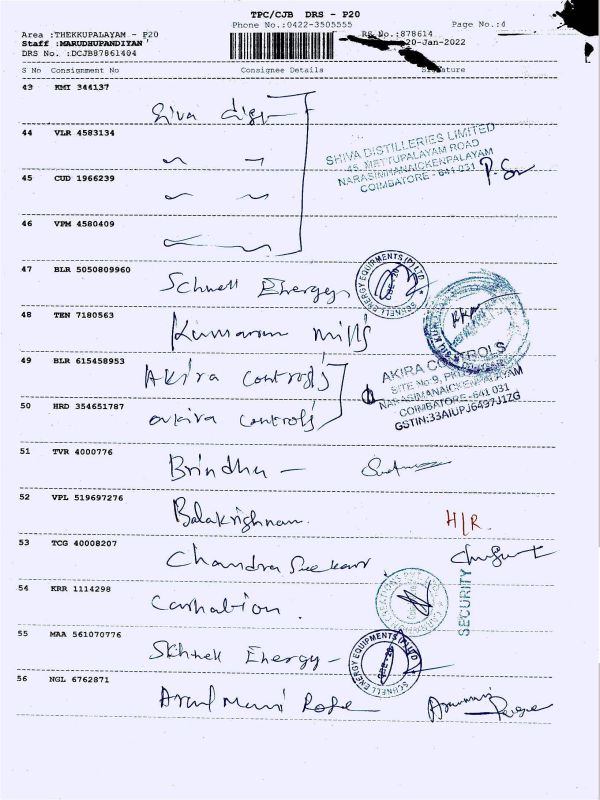 TPC/CJB DRS - P20
Phone No.:0422-3505555 Page No.:4
Area :THEKKUPALAYAM - P20 RS No.:878614
Staff :MARUDHUPANDIYAN 20-Jan-2022
DRS No. :DCJB87861404
S No Consignment No Consignee Details Signature
43 KMI 344137
Siva
44 VLR 4583134
SHIVA DISTILLERIES LIMITED
45, METTUPALAYAM ROAD
NARASIMHANAICKENPALAYAM
COIMBATORE - 641 031
45 CUD 1966239
46 VPM 4580409
47 BLR 5050809960
Schnell Energy
SCHNELL ENERGY EQUIPMENTS (P) LTD
48 TEN 7180563
Kumaran mills
49 BLR 615458953
Akira Controls
AKIRA CONTROLS
SITE No.9,
NARASIMANAICKENPALAYAM
COIMBATORE - 641 031
GSTIN:33AIUPJ6497J1ZG
50 HRD 354651787
akira controls
51 TVR 4000776
Brindha
52 VPL 519697276
Balakrishnan.
H/R.
53 TCG 40008207
Chandra Seekar
54 KRR 1114298
SECURITY
55 MAA 561070776
Skhnell Energy
SCHNELL ENERGY EQUIPMENTS (P) LTD
56 NGL 6762871
Arul Mani Rope